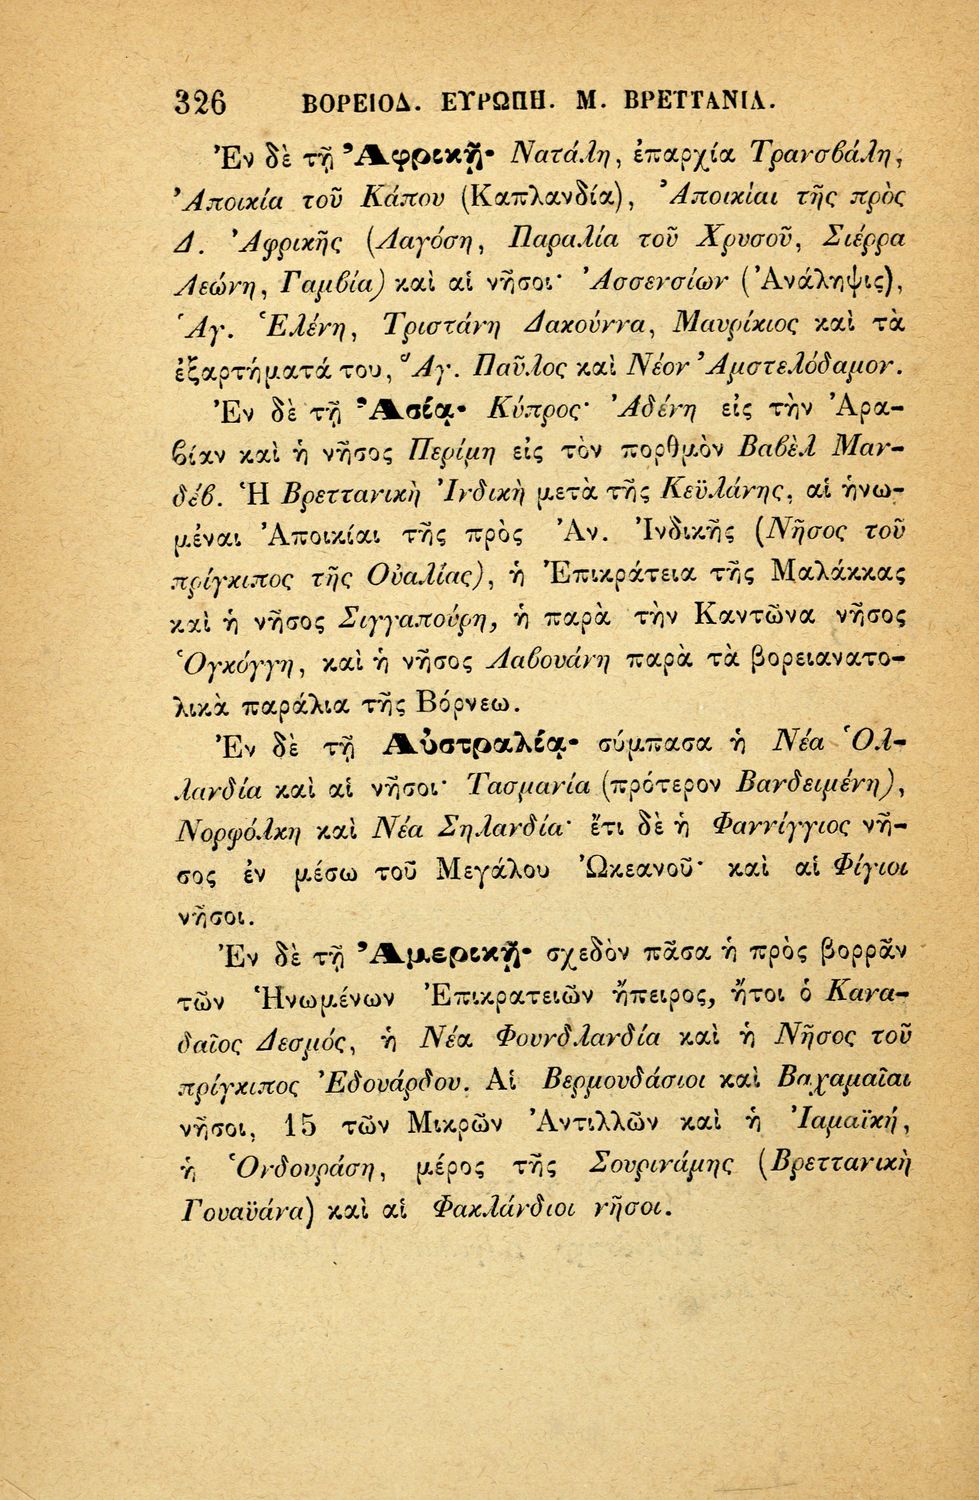 326 ΒΟΡΕΙΟΔ. ΕΥΡΩΠΗ. Μ. ΒΡΕΤΤΑΝΙΑ.
Ἐν δὲ τῇ Ἀφρικῇ· Νατάλη, ἐπαρχία Τρανσβάλη,
Ἀποικία τοῦ Κάπου (Καπλανδία), Ἀποικίαι τῆς πρὸς
Δ. Ἀφρικῆς (Λαγόση, Παραλία τοῦ Χρυσοῦ, Σιέρρα
Λεώνη, Γαμβία) καὶ αἱ νῆσοι· Ἀσσενσίων (Ἀνάληψις),
Ἁγ. Ἑλένη, Τριστάνη Δακούννα, Μαυρίκιος καὶ τὰ
ἐξαρτήματά του, Ἅγ. Παῦλος καὶ Νέον Ἀμστελόδαμον.
Ἐν δὲ τῇ Ἀσίᾳ· Κύπρος· Ἀδένη εἰς τὴν Ἀρα-
βίαν καὶ ἡ νῆσος Περίμη εἰς τὸν πορθμὸν Βαβὲλ Μαν-
δέβ. Ἡ Βρεττανικὴ Ἰνδικὴ μετὰ τῆς Κεϋλάνης, αἱ ἡνω-
μέναι Ἀποικίαι τῆς πρὸς Ἀν. Ἰνδικῆς (Νῆσος τοῦ
πρίγκιπος τῆς Οὐαλίας), ἡ Ἐπικράτεια τῆς Μαλάκκας
καὶ ἡ νῆσος Σιγγαπούρη, ἡ παρὰ τὴν Καντῶνα νῆσος
Ὁγκόγγη, καὶ ἡ νῆσος Λαβουάνη παρὰ τὰ βορειανατο-
λικὰ παράλια τῆς Βόρνεω.
Ἐν δὲ τῇ Αὐστραλίᾳ· σύμπασα ἡ Νέα Ὁλ-
λανδία καὶ αἱ νῆσοι· Τασμανία (πρότερον Βανδειμένη),
Νορφόλκη καὶ Νέα Ζηλανδία· ἔτι δὲ ἡ Φαννίγγιος νῆ-
σος ἐν μέσω τοῦ Μεγάλου Ὠκεανοῦ· καὶ αἱ Φίγιοι
νῆσοι.
Ἐν δὲ τῇ Ἀμερικῇ· σχεδὸν πᾶσα ἡ πρὸς βορρᾶν
τῶν Ἡνωμένων Ἐπικρατειῶν ἤπειρος, ἤτοι ὁ Κανα-
δαῖος Δεσμός, ἡ Νέα Φουνδλανδία καὶ ἡ Νῆσος τοῦ
πρίγκιπος Ἐδουάρδου. Αἱ Βερμουδάσιοι καὶ Βαχαμαῖαι
νῆσοι, 15 τῶν Μικρῶν Ἀντιλλῶν καὶ ἡ Ἰαμαϊκή,
ἡ Ὁνδουράση, μέρος τῆς Σουρινάμης (Βρεττανικὴ
Γουαϋάνα) καὶ αἱ Φακλάνδιοι νῆσοι.